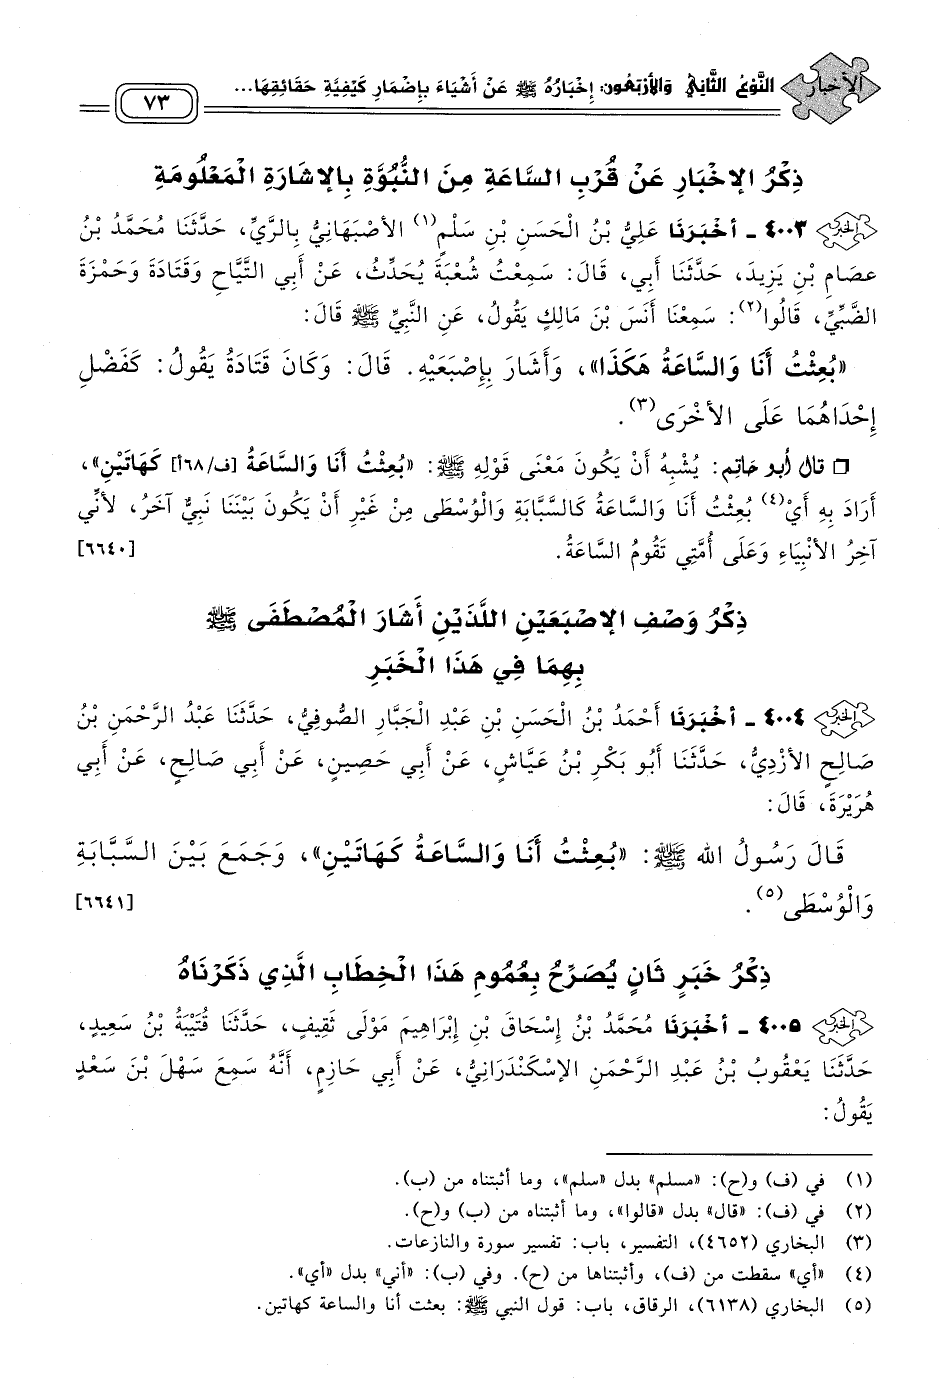 الأخبار
النَّوْعُ الثَّانِي وَالأَرْبَعُونَ: إِخْبَارُهُ ﷺ عَنْ أَشْيَاءَ بِإِضْمَارِ كَيْفِيَّةِ حَقَائِقِهَا...
٧٣
ذِكْرُ الإِخْبَارِ عَنْ قُرْبِ السَّاعَةِ مِنَ النُّبُوَّةِ بِالإِشَارَةِ الْمَعْلُومَةِ
٤٠٠٣ - أَخْبَرَنَا عَلِيُّ بْنُ الْحَسَنِ بْنِ سَلْمٍ(١) الأَصْبَهَانِيُّ بِالرَّيِّ، حَدَّثَنَا مُحَمَّدُ بْنُ
عِصَامِ بْنِ يَزِيدَ، حَدَّثَنَا أَبِي، قَالَ: سَمِعْتُ شُعْبَةَ يُحَدِّثُ، عَنْ أَبِي التَّيَّاحِ وَقَتَادَةَ وَحَمْزَةَ
الضَّبِّيِّ، قَالُوا(٢): سَمِعْنَا أَنَسَ بْنَ مَالِكٍ يَقُولُ، عَنِ النَّبِيِّ ﷺ قَالَ:
«بُعِثْتُ أَنَا وَالسَّاعَةُ هَكَذَا»، وَأَشَارَ بِإِصْبَعَيْهِ. قَالَ: وَكَانَ قَتَادَةُ يَقُولُ: كَفَضْلِ
إِحْدَاهُمَا عَلَى الأُخْرَى(٣).
□ قَالَ أَبُو حَاتِمٍ: يُشْبِهُ أَنْ يَكُونَ مَعْنَى قَوْلِهِ ﷺ: «بُعِثْتُ أَنَا وَالسَّاعَةُ [ف/٦٨أ] كَهَاتَيْنِ»،
أَرَادَ بِهِ أَيْ(٤) بُعِثْتُ أَنَا وَالسَّاعَةُ كَالسَّبَّابَةِ وَالْوُسْطَى مِنْ غَيْرِ أَنْ يَكُونَ بَيْنَنَا نَبِيٌّ آخَرُ، لأَنِّي
آخِرُ الأَنْبِيَاءِ وَعَلَى أُمَّتِي تَقُومُ السَّاعَةُ. [٦٦٤٠]
ذِكْرُ وَصْفِ الإِصْبَعَيْنِ اللَّذَيْنِ أَشَارَ الْمُصْطَفَى ﷺ
بِهِمَا فِي هَذَا الْخَبَرِ
٤٠٠٤ - أَخْبَرَنَا أَحْمَدُ بْنُ الْحَسَنِ بْنِ عَبْدِ الْجَبَّارِ الصُّوفِيُّ، حَدَّثَنَا عَبْدُ الرَّحْمَنِ بْنُ
صَالِحٍ الأَزْدِيُّ، حَدَّثَنَا أَبُو بَكْرِ بْنُ عَيَّاشٍ، عَنْ أَبِي حَصِينٍ، عَنْ أَبِي صَالِحٍ، عَنْ أَبِي
هُرَيْرَةَ، قَالَ:
قَالَ رَسُولُ اللهِ ﷺ: «بُعِثْتُ أَنَا وَالسَّاعَةُ كَهَاتَيْنِ»، وَجَمَعَ بَيْنَ السَّبَّابَةِ
وَالْوُسْطَى(٥). [٦٦٤١]
ذِكْرُ خَبَرٍ ثَانٍ يُصَرِّحُ بِعُمُومِ هَذَا الْخِطَابِ الَّذِي ذَكَرْنَاهُ
٤٠٠٥ - أَخْبَرَنَا مُحَمَّدُ بْنُ إِسْحَاقَ بْنِ إِبْرَاهِيمَ مَوْلَى ثَقِيفٍ، حَدَّثَنَا قُتَيْبَةُ بْنُ سَعِيدٍ،
حَدَّثَنَا يَعْقُوبُ بْنُ عَبْدِ الرَّحْمَنِ الإِسْكَنْدَرَانِيُّ، عَنْ أَبِي حَازِمٍ، أَنَّهُ سَمِعَ سَهْلَ بْنَ سَعْدٍ
يَقُولُ:
(١) في (ف) و(ح): «مسلم» بدل «سلم»، وما أثبتناه من (ب).
(٢) في (ف): «قال» بدل «قالوا»، وما أثبتناه من (ب) و(ح).
(٣) البخاري (٤٦٥٢)، التفسير، باب: تفسير سورة والنازعات.
(٤) «أي» سقطت من (ف)، وأثبتناها من (ح). وفي (ب): «أني» بدل «أي».
(٥) البخاري (٦١٣٨)، الرقاق، باب: قول النبي ﷺ: بعثت أنا والساعة كهاتين.